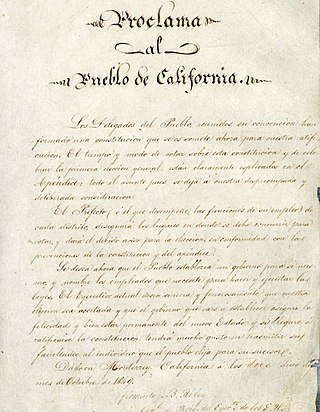 Proclama
al
Pueblo de California.
Los Delegados del Pueblo, reunidos en convencion han
formado una constitucion que se os somete ahora para vuestra ratifi-
cacion. El tiempo y modo de votar sobre esta constitucion y de cele-
brar la primera eleccion general, estan claramente esplicados en el
Apendice; todo el asunto pues se deja a vuestra despreocupada y
deliberada consideracion.
El Prefecto, (ó el que desempeñe las funciones de su empleo) de
cada distrito, designará los lugares en donde se debe reunir para
votar, y dará el debido aviso para la eleccion, en conformidad con las
prevenciones de la constitucion y del apendice.
Se desea ahora que el Pueblo establezca un gobierno para si mis-
mo, y nombre los empleados que necesite para hacer y ejecutar las
leyes. El Ejecutivo actual desea ansiosa y fervorosamente que vuestra
eleccion sea acertada y que el gobierno que vais a establecer asegure la
felicidad y bien estar permanente del nuevo Estado y si llegare a
ratificarse la constitucion tendrá mucho gusto en transmitir sus
facultades al individuo que el pueblo elija para su sucesor.
Dado en Monterey, California a los doce dias del
mes de Octubre de 1849.
B. Riley